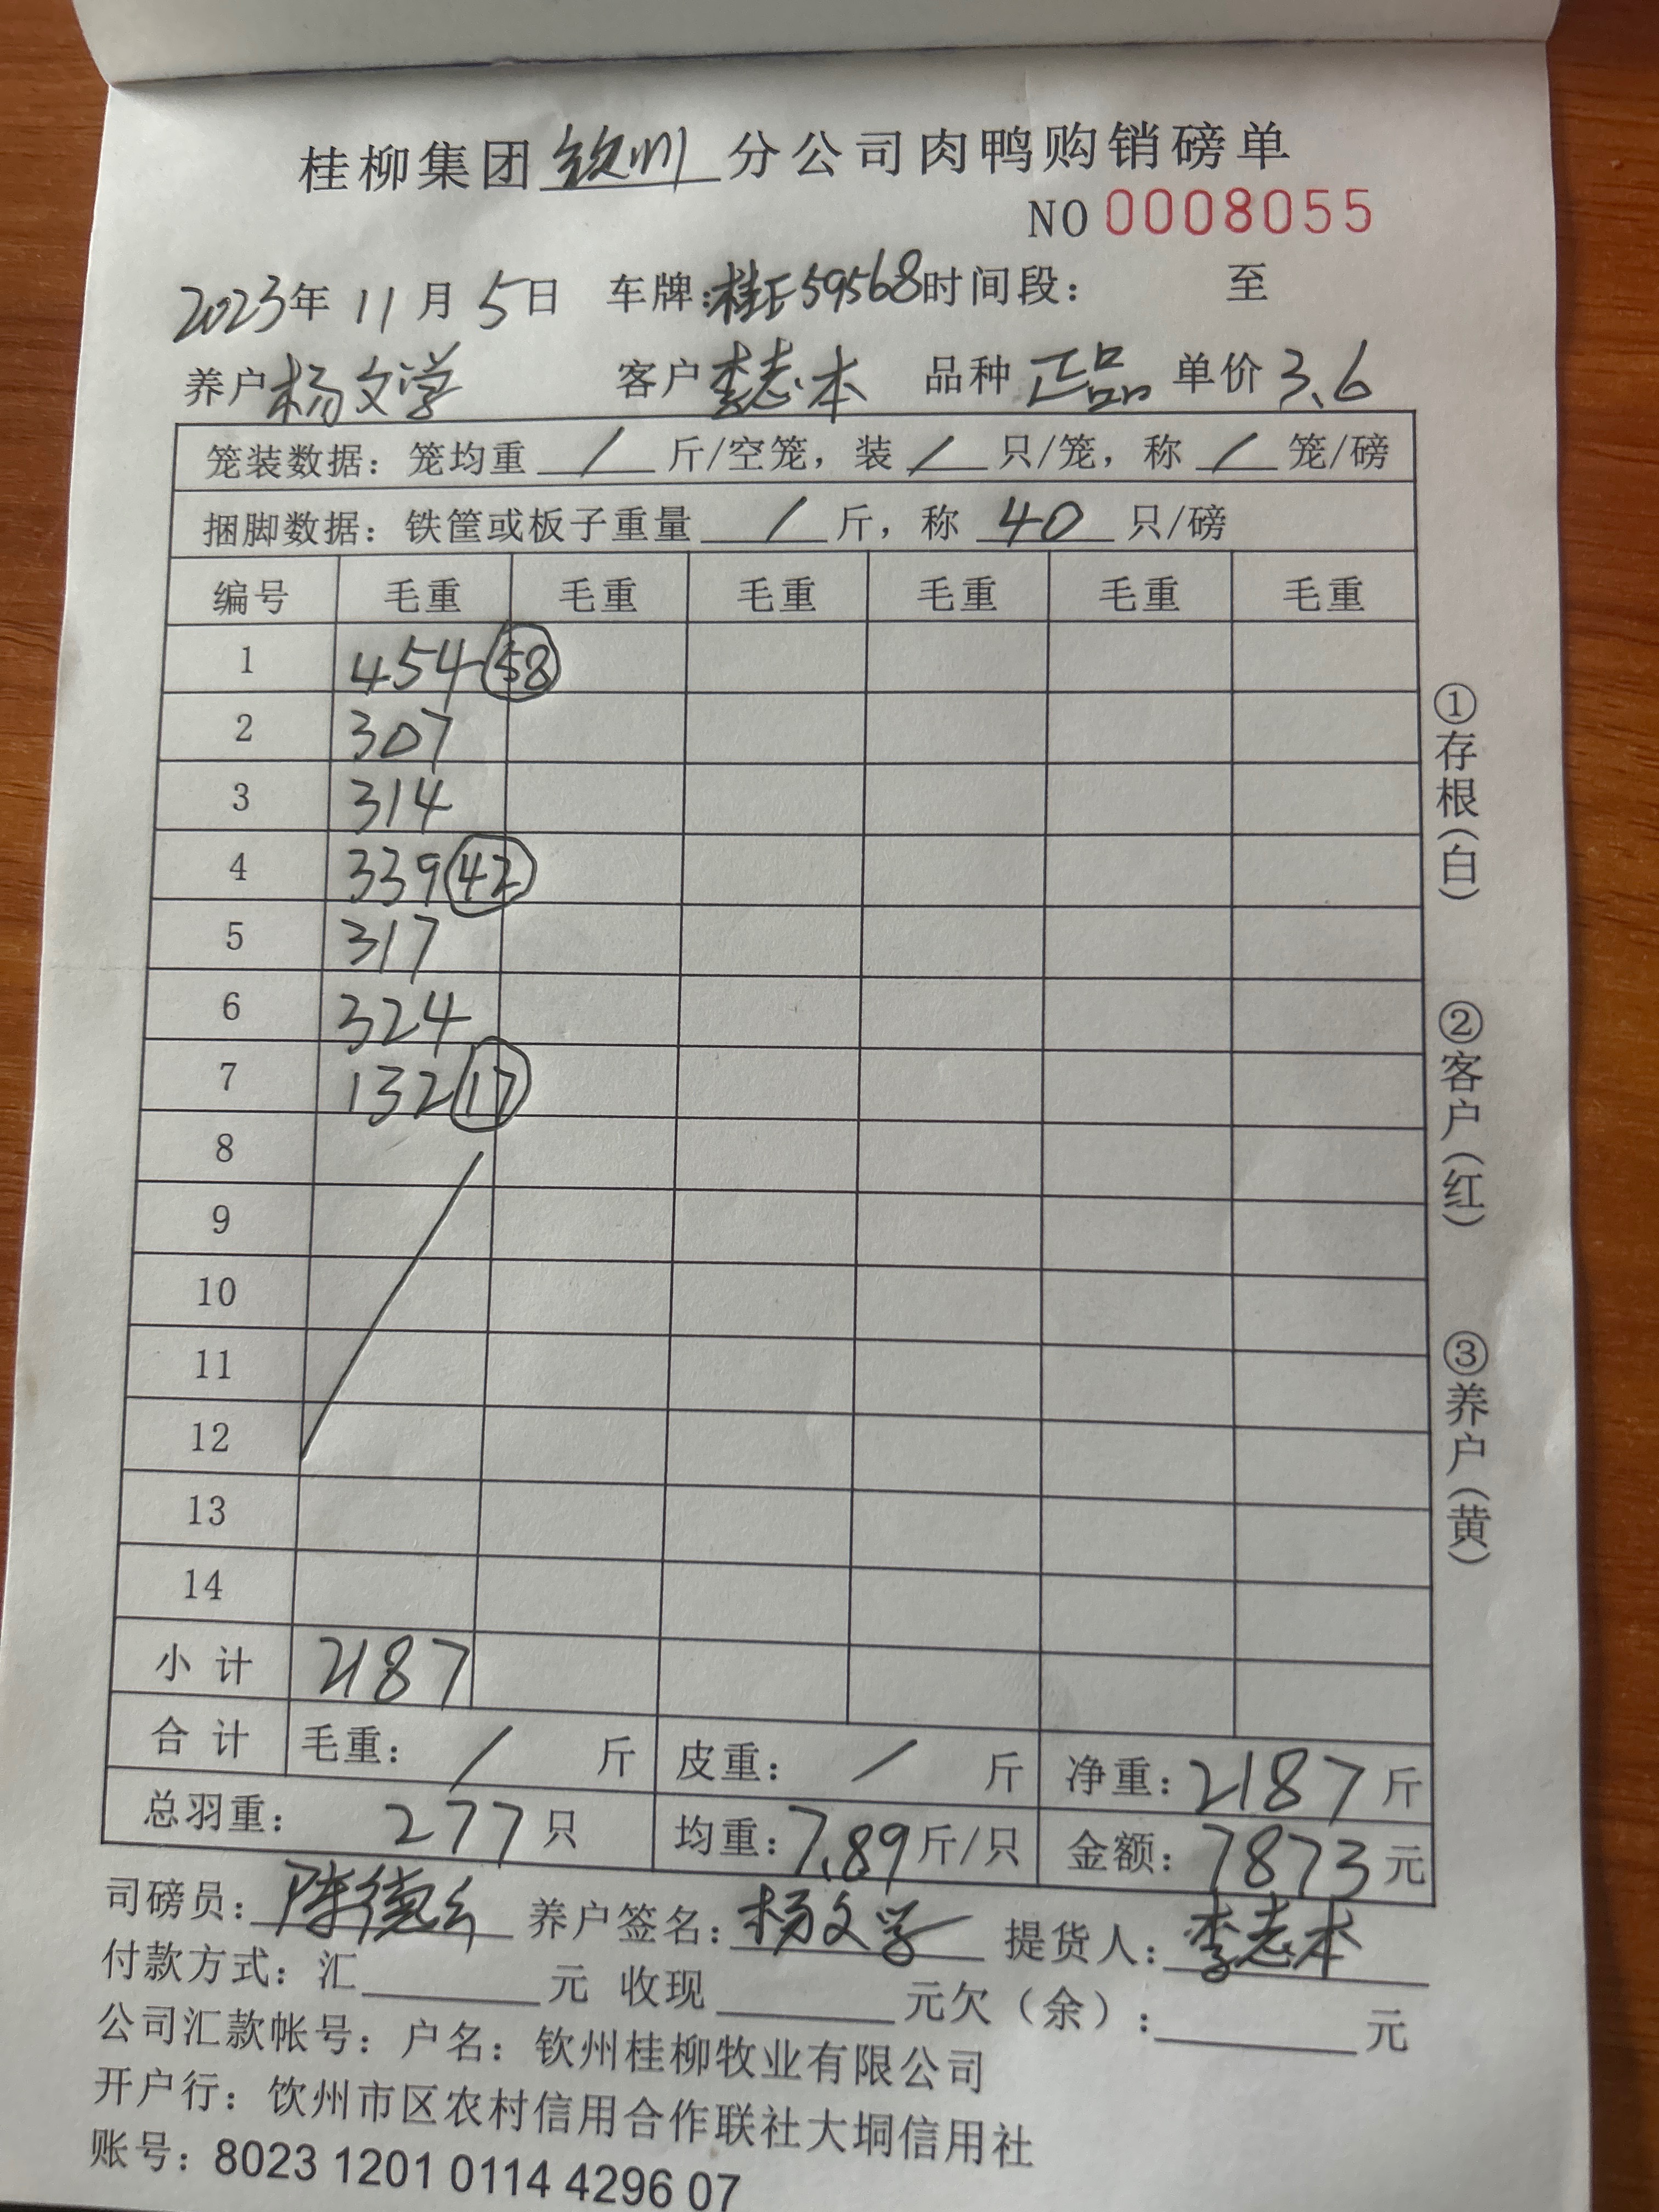 桂柳集团钦州分公司肉鸭购销磅单
NO 0008055
2023年 11月 5日 车牌:桂E59568时间段: 至
养户杨文学 客户李志本 品种 正品 单价 3.6
笼装数据: 笼均重 / 斤/空笼, 装 / 只/笼, 称 / 笼/磅
捆脚数据: 铁筐或板子重量 / 斤, 称 40 只/磅
编号 毛重 毛重 毛重 毛重 毛重 毛重
1 454 58
2 307
3 314
4 339 42
5 317
6 324
7 132 17
8
9
10
11
12
13
14
小计 2187
合计 毛重: / 斤 皮重: / 斤 净重: 2187 斤
总羽重: 277 只 均重: 7.89 斤/只 金额: 7873 元
司磅员: 陈德 养户签名: 杨文学 提货人: 李志本
付款方式: 汇 元 收现 元欠(余): 元
公司汇款帐号: 户名: 钦州桂柳牧业有限公司
开户行: 饮州市区农村信用合作联社大垌信用社
账号: 8023 1201 0114 4296 07
①存根(白)
②客户(红)
③养户(黄)